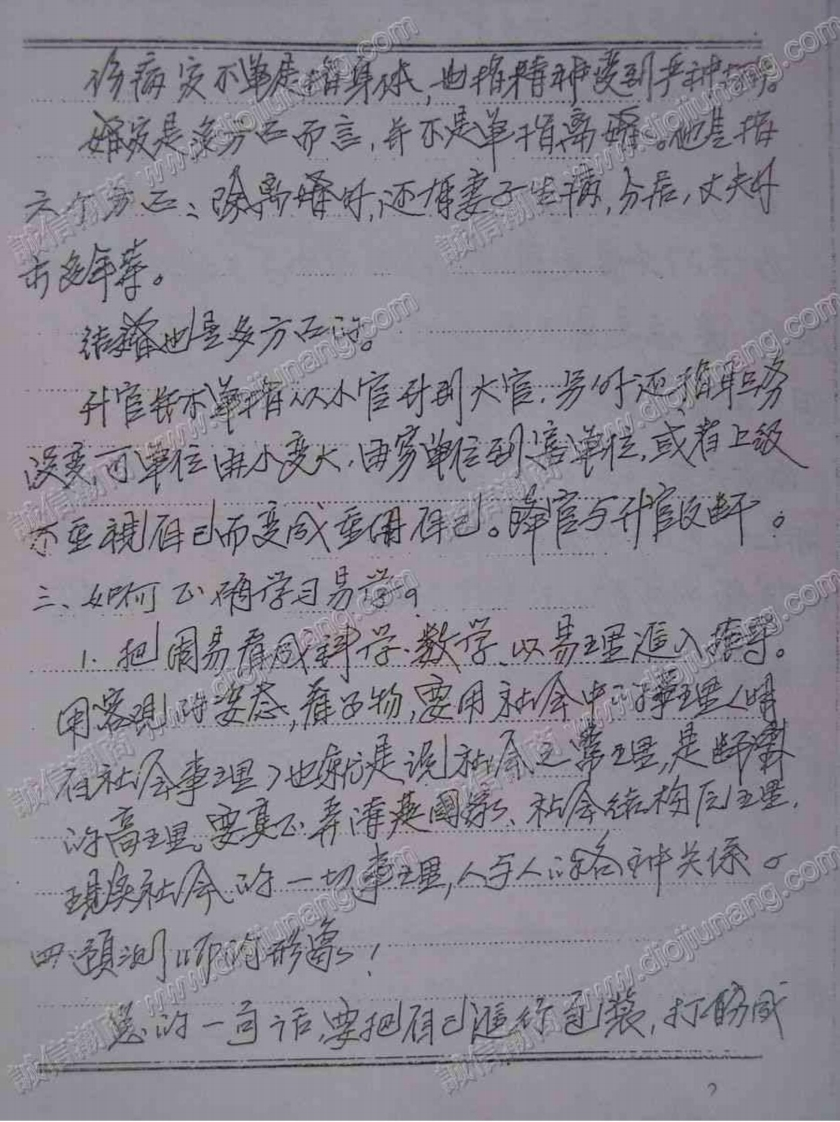 伤病灾不单是指身体,也指精神受到
婚灾是多方面而言,并不是单指离婚。他是指
六个方面:除离婚外,还有妻子生病,分居,丈夫外
结婚也是多方面的。
升官 不单指从小官升到大官,另外还指职务
没变,可单位由小变大,由穷单位到富单位,或者上级
不重视自己而变成重用自己。降官与升官反断。
三、如何正确学习易学。
1. 把周易看成科学、数学、以易理進入
用客观的姿态,看事物,要用社会中的事理(明
白社会事理)也就是说社会之常理,是断
的高理。要真正弄清楚國家、社会结构原理,
現实社会的一切事理,人与人的各种关係。
四、預測师的形象!
总的一句话,要把自己進行包装,打扮成
2
誠信潮商 www.diojiunang.com